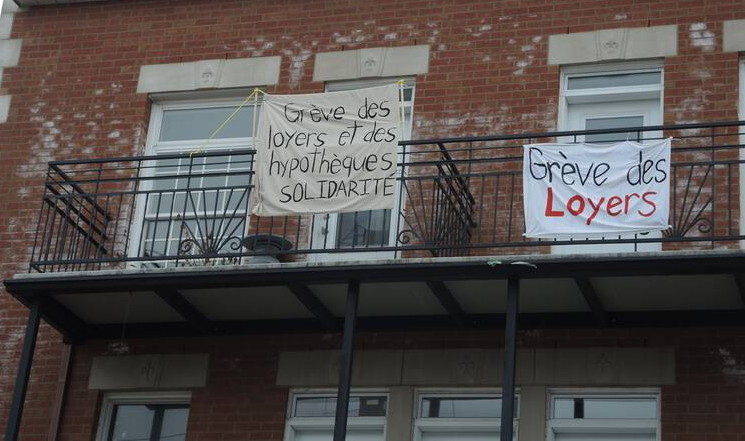 Grève des
loyers et des
hypothèques
SOLIDARITÉ
Grève des
Loyers